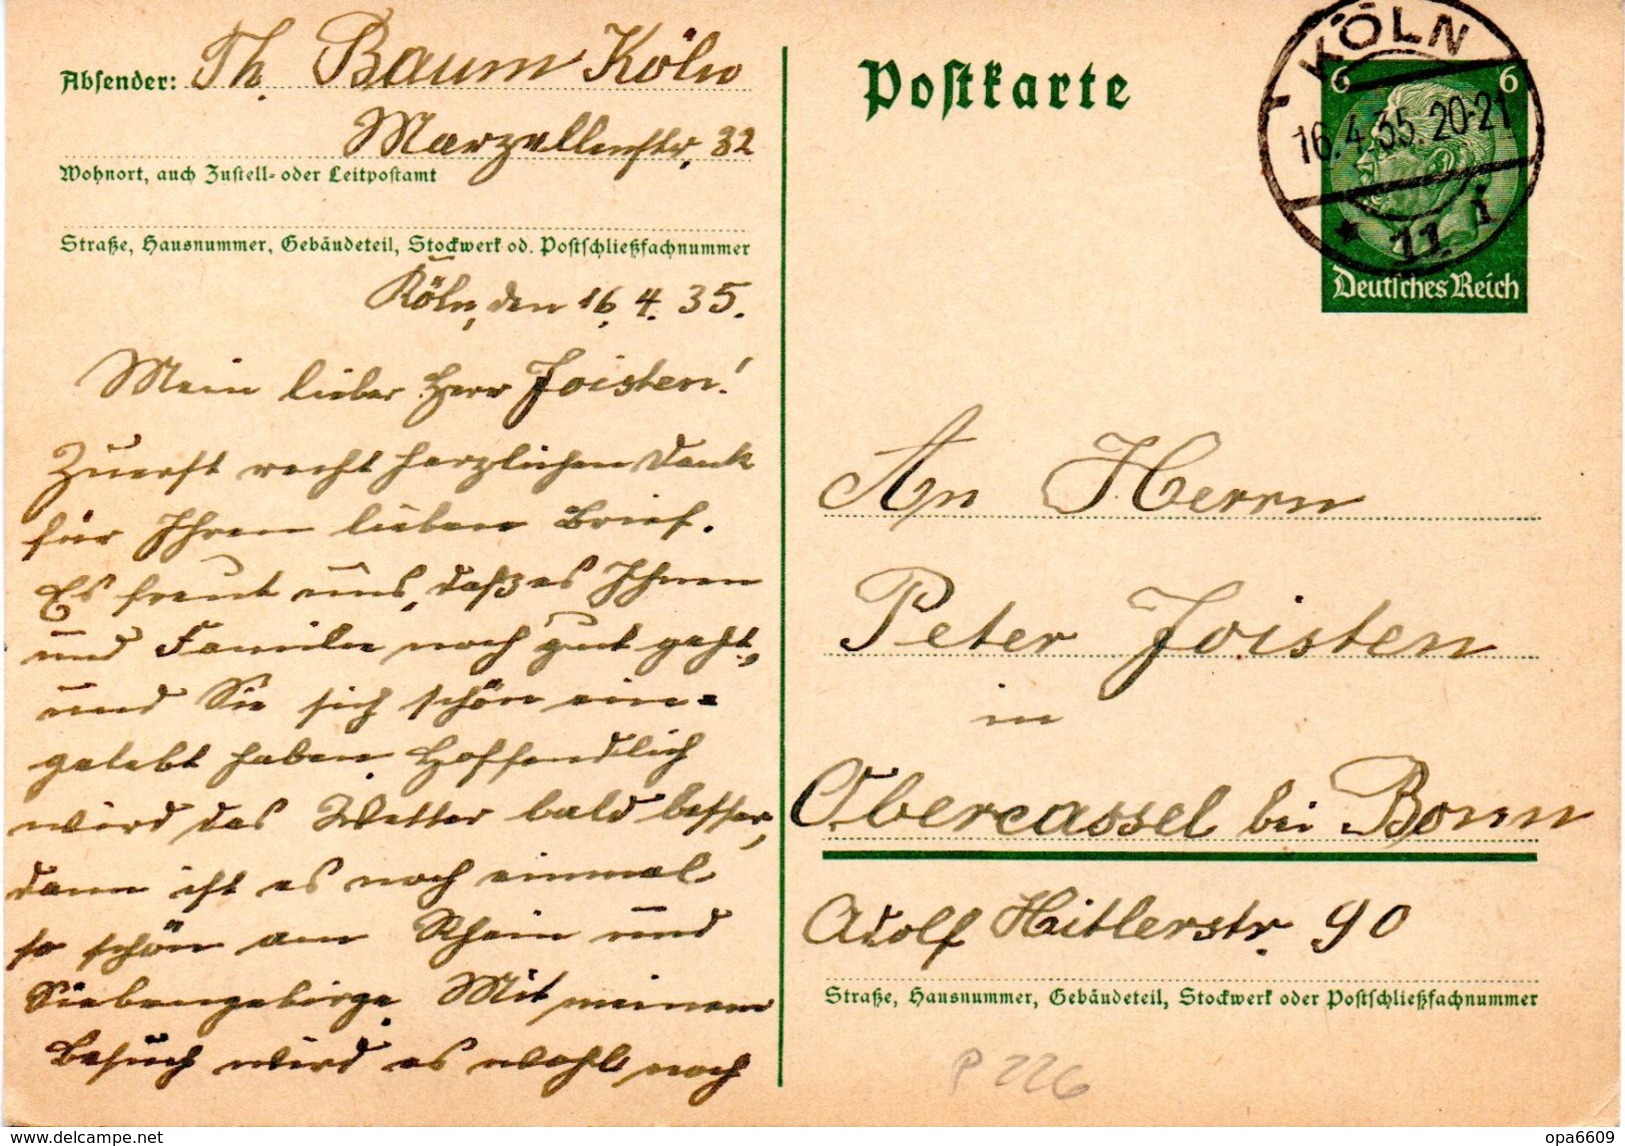 Absender: Th. Baum Köln
Marzellenstr. 32
Wohnort, auch Zustell- oder Leitpostamt
Straße, Hausnummer, Gebäudeteil, Stockwerk od. Postschließfachnummer
Köln, den 16.4.35.
Mein lieber Herr Joisten!
Zuerst recht herzlichen Dank
für Ihren lieben Brief.
Es freut uns, daß es Ihnen
und Familie noch gut geht,
und Sie sich schön ein=
gelebt haben. Hoffendlich
wird das Wetter bald besser,
dann ist es noch einmal
so schön am Rhein und
Siebengebirge. Mit meinem
Besuch wird es wohl noch
Postkarte
KÖLN
16.4.35.20-21
* 11. i
6 6
Deutsches Reich
An Herrn
Peter Joisten
in
Obercassel bei Bonn
Adolf Hitlerstr. 90
Straße, Hausnummer, Gebäudeteil, Stockwerk oder Postschließfachnummer
P 226
www.delcampe.net
opa6609